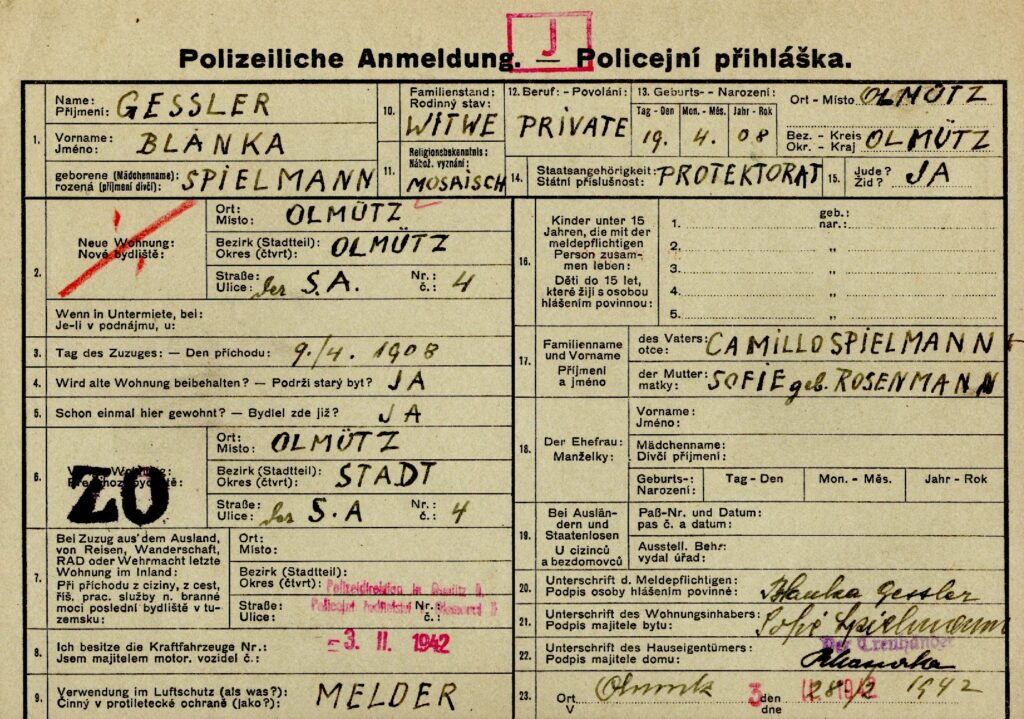 J
Polizeiliche Anmeldung. — Policejní přihláška.
1.
Name:
Příjmení:
GESSLER
Vorname:
Jméno:
BLANKA
geborene (Mädchenname):
rozená (příjmení dívčí):
SPIELMANN
10.
Familienstand:
Rodinný stav:
WITWE
11.
Religionsbekenntnis:
Nábož. vyznání:
MOSAISCH
12. Beruf: - Povolání:
PRIVATE
13. Geburts- - Narození:
Tag - Den Mon. - Měs. Jahr - Rok
19. 4. 08
Ort - Místo OLMÜTZ
Bez. - Kreis
Okr. - Kraj OLMÜTZ
14.
Staatsangehörigkeit:
Státní příslušnost:
PROTEKTORAT
15.
Jude?
Žid?
JA
2.
Neue Wohnung:
Nové bydliště:
Ort:
Místo:
OLMÜTZ
Bezirk (Stadtteil):
Okres (čtvrt):
OLMÜTZ
Straße:
Ulice:
der S.A.
Nr.:
č.:
4
Wenn in Untermiete, bei:
Je-li v podnájmu, u:
3. Tag des Zuzuges: — Den příchodu: 9./4. 1908
4. Wird alte Wohnung beibehalten? — Podrží starý byt? JA
5. Schon einmal hier gewohnt? — Bydlel zde již? JA
6.
ZO
Ort:
Místo:
OLMÜTZ
Bezirk (Stadtteil):
Okres (čtvrt):
STADT
Straße:
Ulice:
der S.A
Nr.:
č.:
4
7.
Bei Zuzug aus dem Ausland,
von Reisen, Wanderschaft,
RAD oder Wehrmacht letzte
Wohnung im Inland:
Při příchodu z ciziny, z cest,
říš. prac. služby n. branné
moci poslední bydliště v tu-
zemsku:
Ort:
Místo:
Bezirk (Stadtteil):
Okres (čtvrt):
Straße:
Ulice:
Nr.:
č.:
Polizeidirektion in
8.
Ich besitze die Kraftfahrzeuge Nr.:
Jsem majitelem motor. vozidel č.:
-3. II. 1942
9.
Verwendung im Luftschutz (als was?):
Činný v protiletecké ochraně (jako?):
MELDER
16.
Kinder unter 15
Jahren, die mit der
meldepflichtigen
Person zusam-
men leben:
Děti do 15 let,
které žijí s osobou
hlášením povinnou:
geb.:
nar.:
1.
2. „
3. „
4. „
5. „
17.
Familienname
und Vorname
Příjmení
a jméno
des Vaters:
otce:
CAMILLO SPIELMANN
der Mutter:
matky:
SOFIE geb. ROSENMANN
18.
Der Ehefrau:
Manželky:
Vorname:
Jméno:
Mädchenname:
Dívčí příjmení:
Geburts-:
Narození:
Tag - Den Mon. - Měs. Jahr - Rok
19.
Bei Auslän-
dern und
Staatenlosen
U cizinců
a bezdomovců
Paß-Nr. und Datum:
pas č. a datum:
Ausstell. Behr:
vydal úřad:
20.
Unterschrift d. Meldepflichtigen:
Podpis osoby hlášením povinné:
Blanka Gessler
21.
Unterschrift des Wohnungsinhabers:
Podpis majitele bytu:
Sofie Spielmann
22.
Unterschrift des Hauseigentümers:
Podpis majitele domu:
Der Treuhänder
23.
Ort
V
Olmütz
den
dne
1942